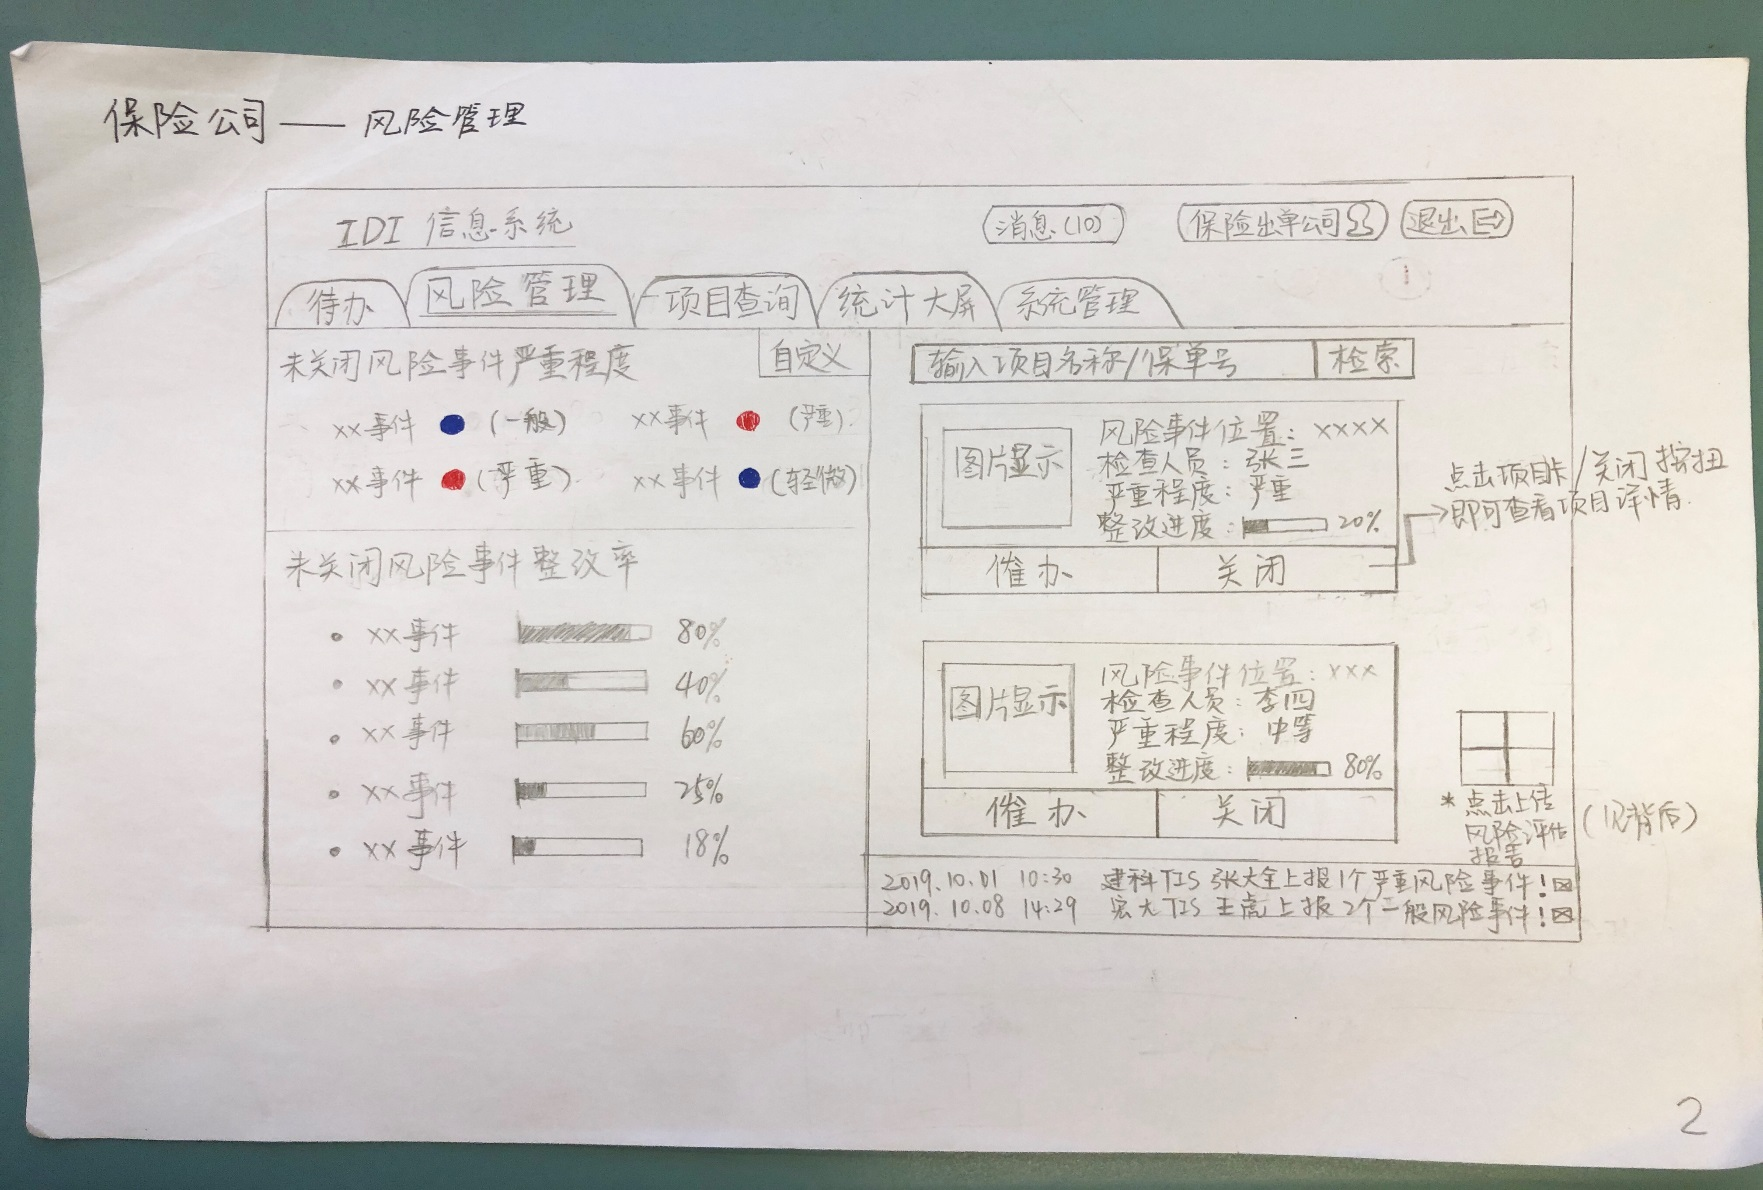 保险公司 —— 风险管理
IDI 信息系统
消息(10)
保险出单公司
退出
待办
风险管理
项目查询
统计大屏
系统管理
未关闭风险事件严重程度
自定义
xx事件 (一般)
xx事件 (严重)
xx事件 (严重)
xx事件 (轻微)
未关闭风险事件整改率
• xx事件 80%
• xx事件 40%
• xx事件 60%
• xx事件 25%
• xx事件 18%
输入项目名称/保单号
检索
图片显示
风险事件位置: xxxx
检查人员: 张三
严重程度: 严重
整改进度: 20%
催办
关闭
点击项目卡/关闭按扭
即可查看项目详情.
图片显示
风险事件位置: xxx
检查人员: 李四
严重程度: 中等
整改进度: 80%
催办
关闭
* 点击上传
风险评估
报告
(见背后)
2019.10.01 10:30 建科TIS 张大全上报1个严重风险事件!
2019.10.08 14:29 宏大TIS 王虎上报2个一般风险事件!
2